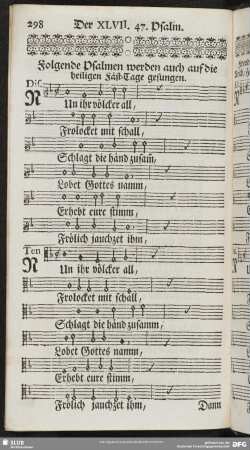 298 Der XLVII. 47. Psalm.
Folgende Psalmen werden auch auf die
heiligen Fäst-Tage gesungen.
Dis.
NUn ihr völcker all,
Frolocket mit schall,
Schlagt die händ zusam,
Lobet Gottes namm,
Erhebt eure stimm,
Frölich jauchzet ihm,
Ten
NUn ihr völcker all,
Frolocket mit schall,
Schlagt die händ zusamm,
Lobet Gottes namm,
Erhebt eure stimm,
Frölich jauchzet ihm, Dann
SLUB
DFG